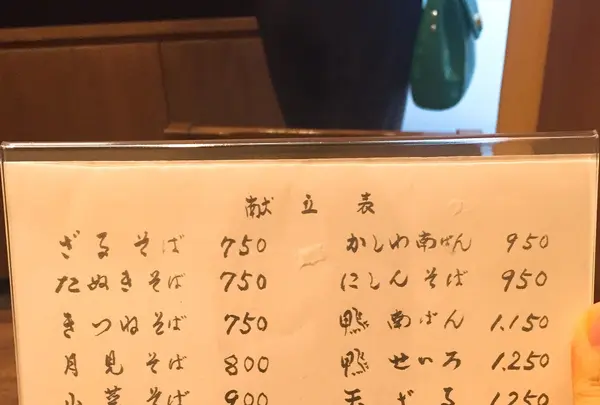 献立表
ざるそば 750
たぬきそば 750
きつねそば 750
月見そば 800
山菜そば 900
かしわ南ばん 950
にしんそば 950
鴨南ばん 1.150
鴨せいろ 1.250
天ざる 1.250